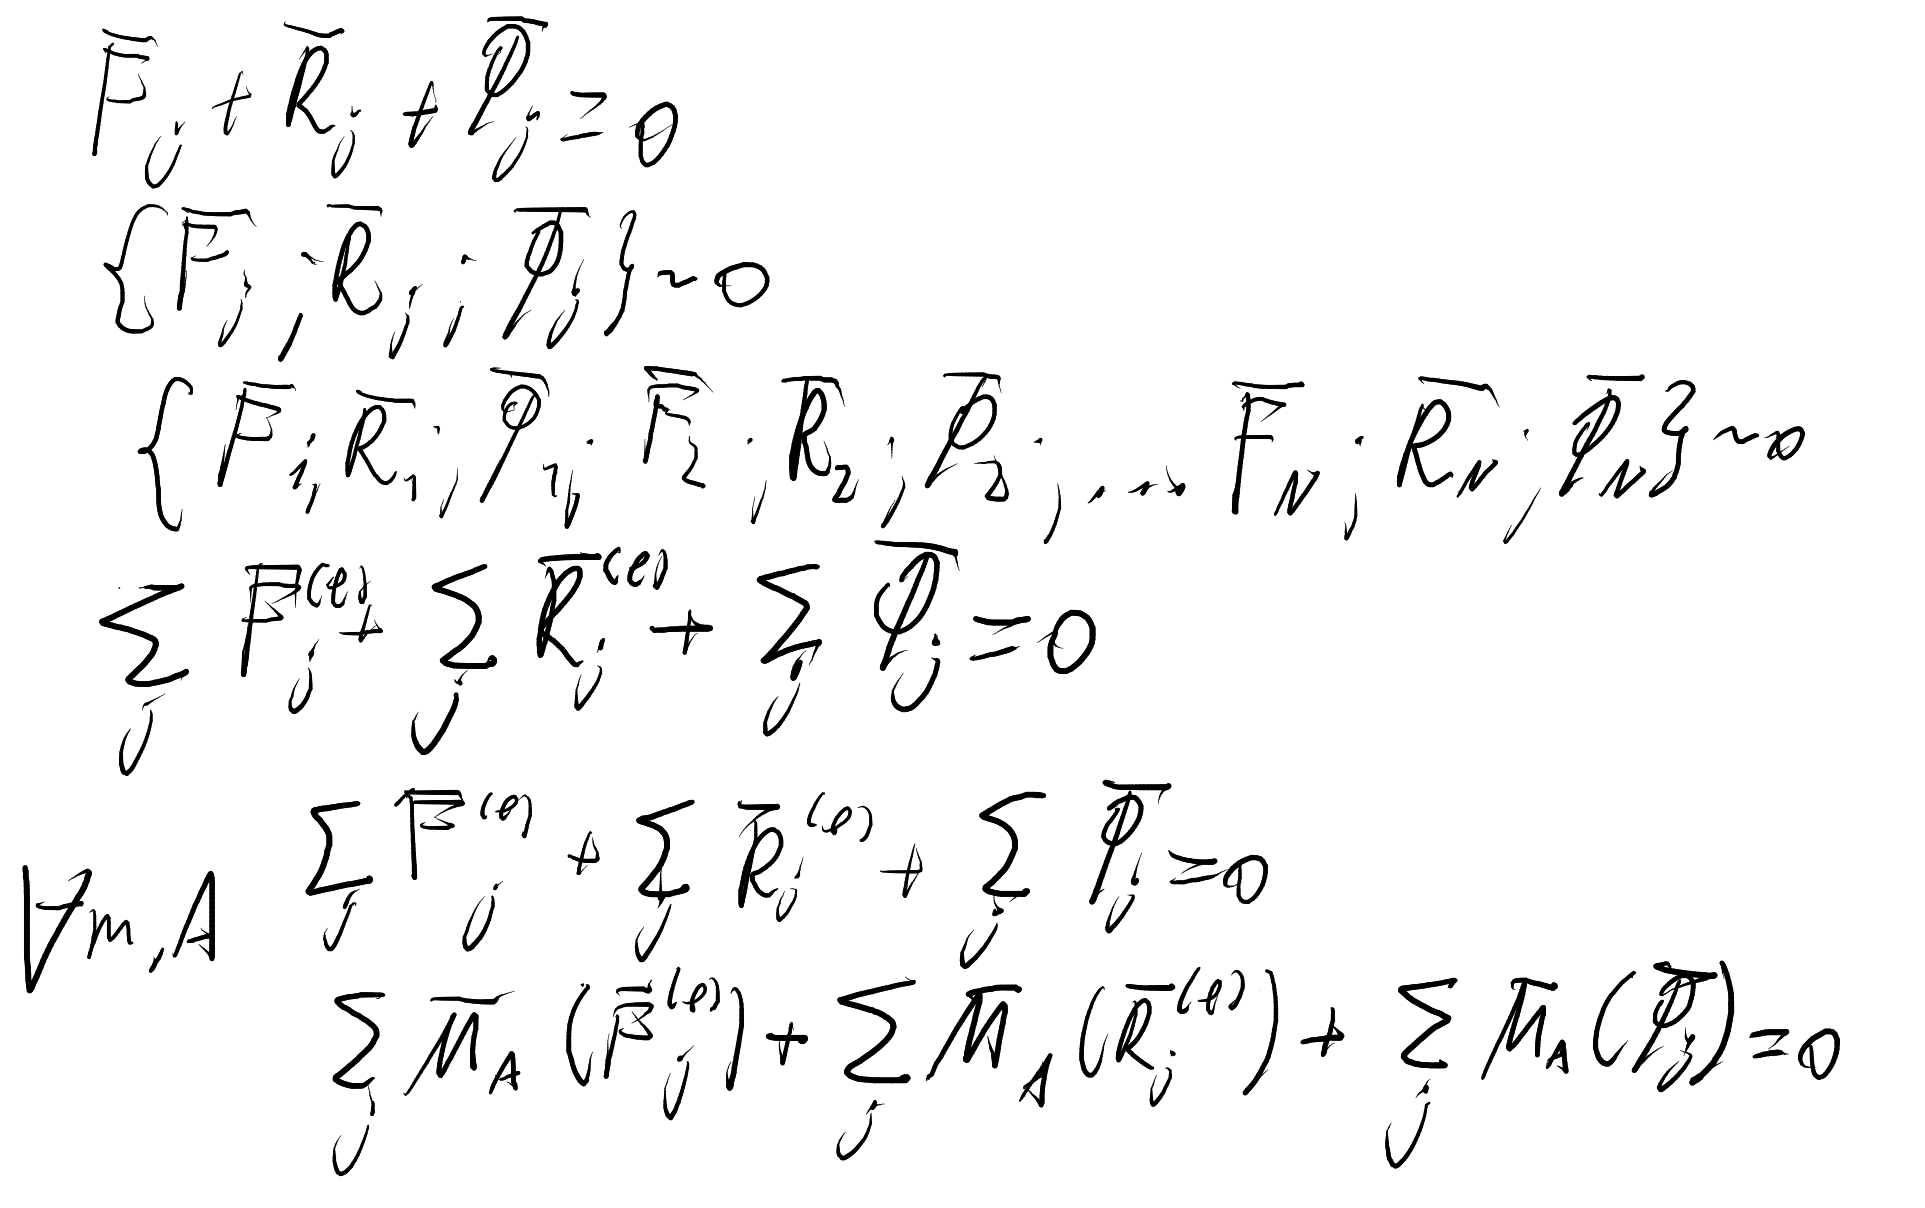 F̅ⱼ + R̅ⱼ + Φ̅ⱼ = 0
{F̅ⱼ; R̅ⱼ; Φ̅ⱼ} ~ 0
{F̅₁; R̅₁; Φ̅₁; F̅₂; R̅₂; Φ̅₂; ... F̅_N; R̅_N; Φ̅_N} ~ 0
∑ⱼ F̅ⱼ⁽ᵉ⁾ + ∑ⱼ R̅ⱼ⁽ᵉ⁾ + ∑ⱼ Φ̅ⱼ = 0
∀ m, A ∑ⱼ F̅ⱼ⁽ᵉ⁾ + ∑ⱼ R̅ⱼ⁽ᵉ⁾ + ∑ⱼ Φ̅ⱼ = 0
∑ⱼ M̅_A (F̅ⱼ⁽ᵉ⁾) + ∑ⱼ M̅_A (R̅ⱼ⁽ᵉ⁾) + ∑ⱼ M̅_A (Φ̅ⱼ) = 0